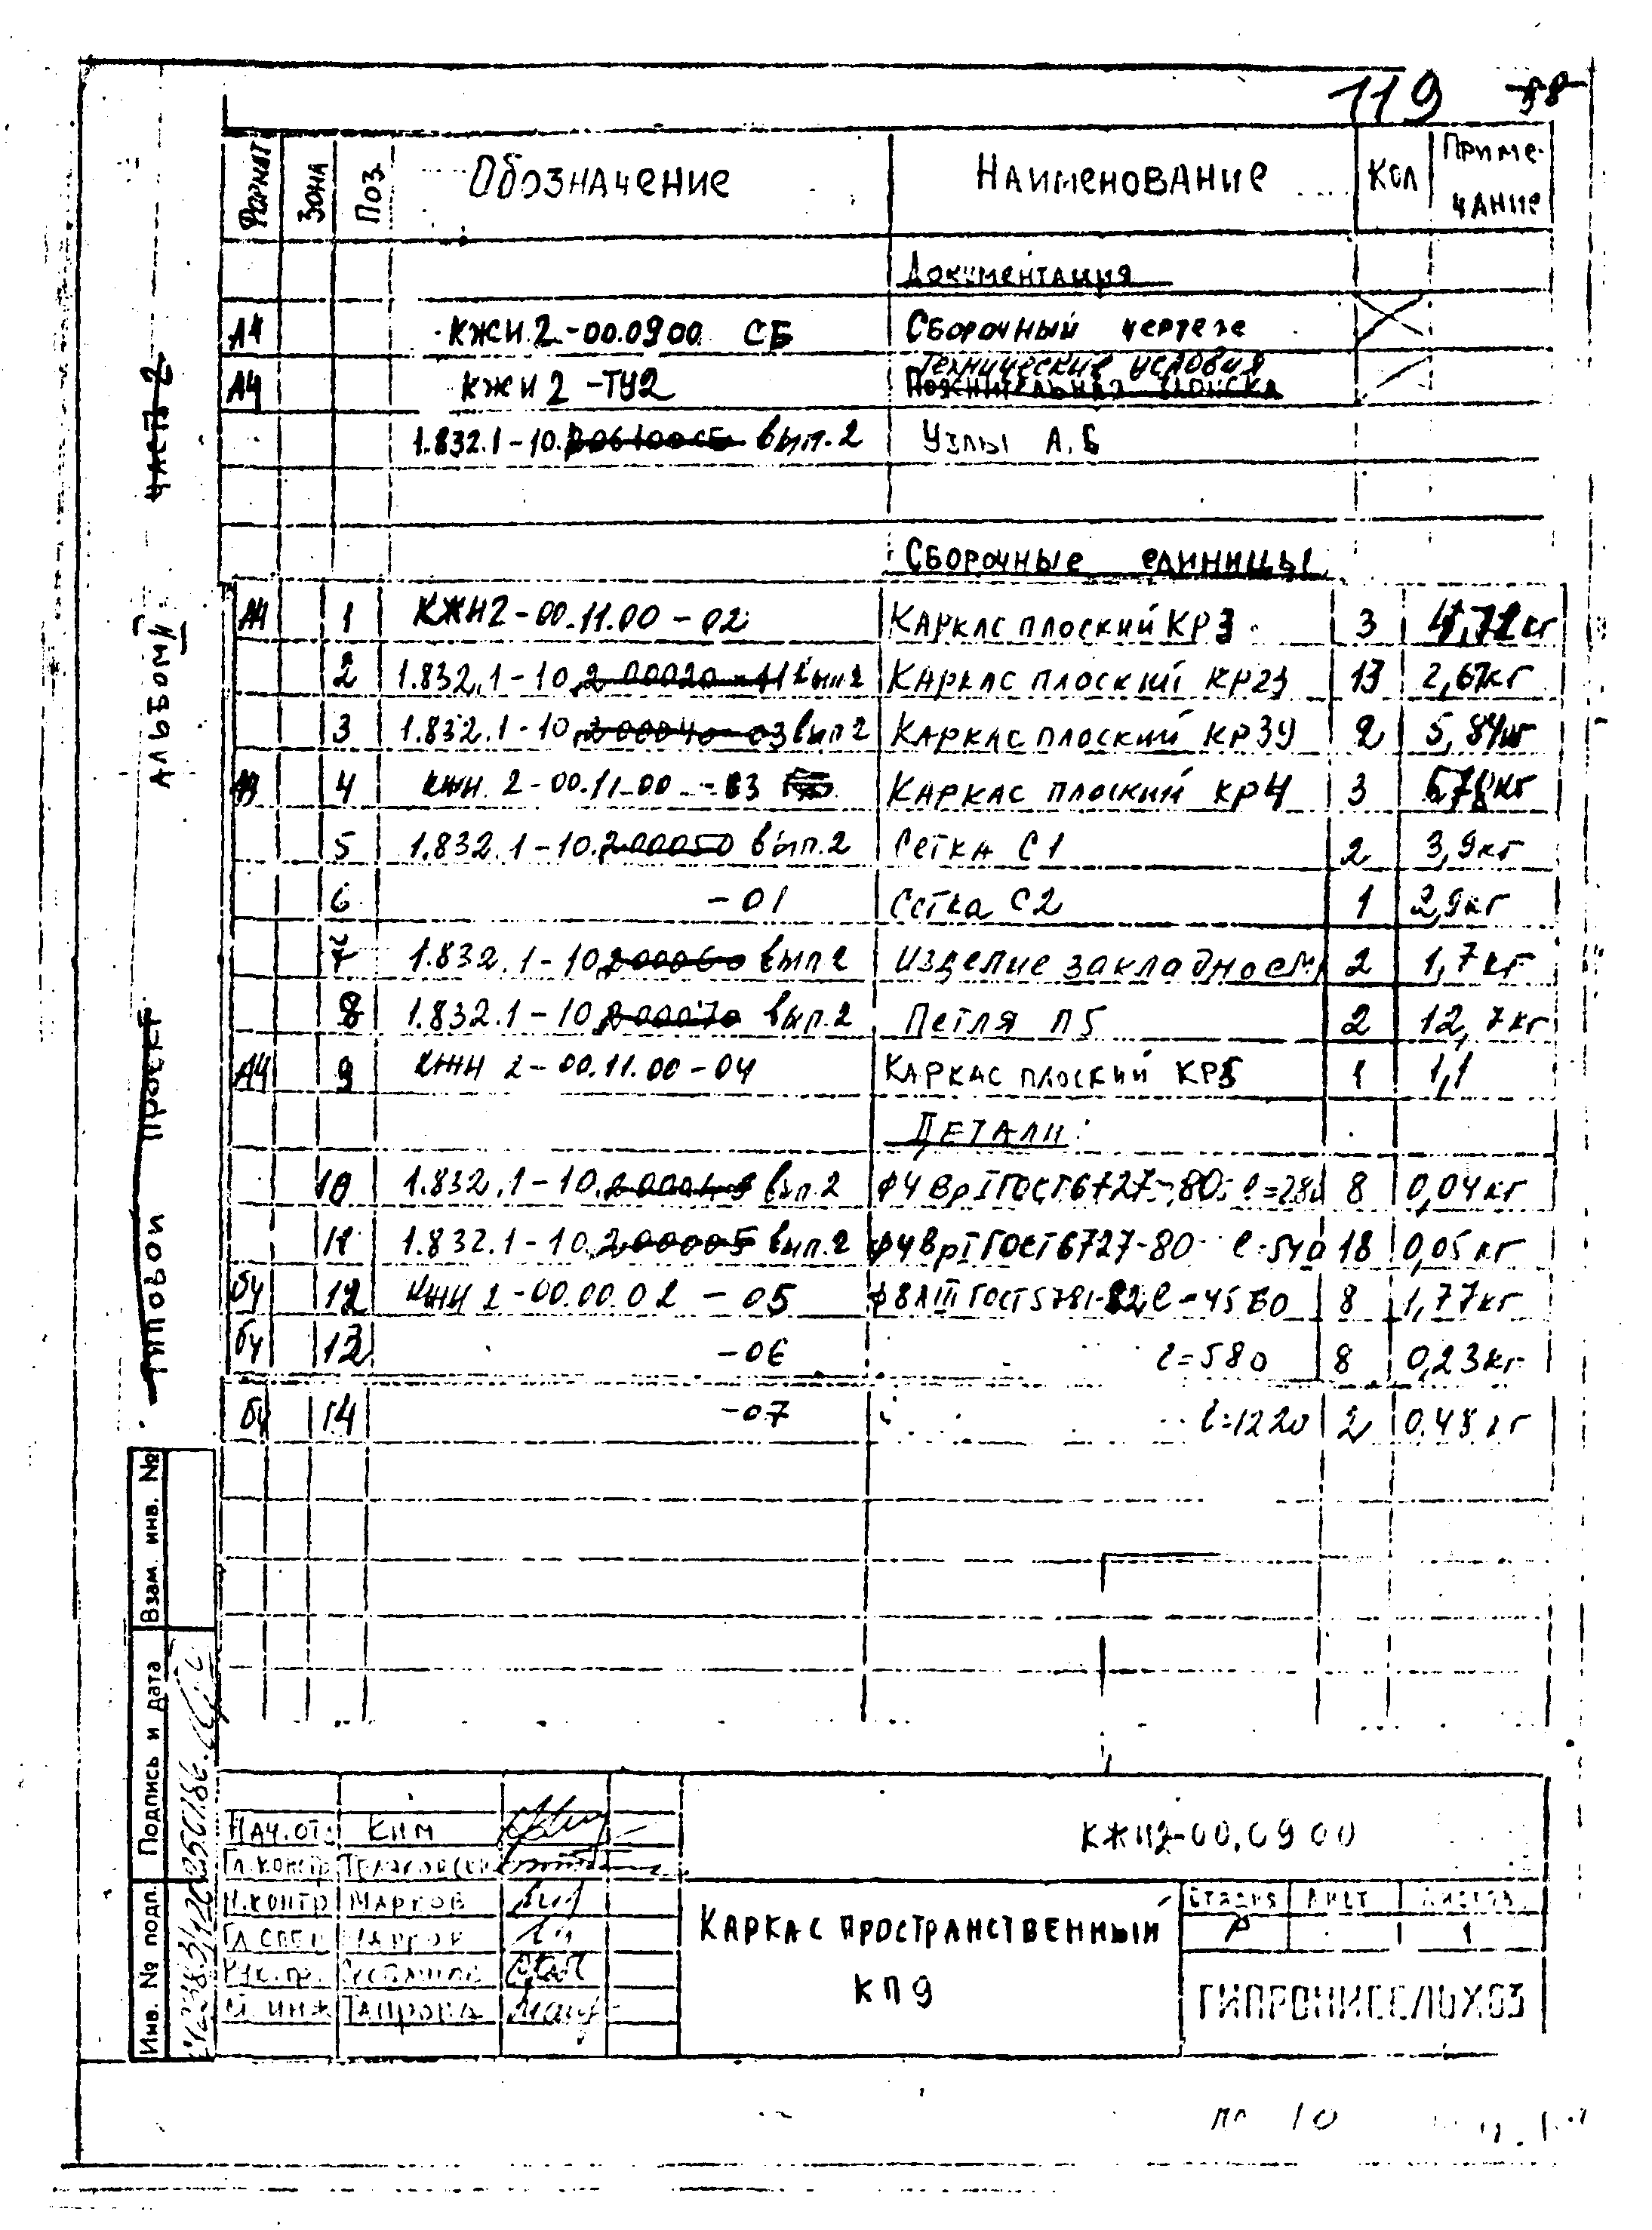 119 58
Формат Зона Поз. Обозначение Наименование Кол Примечание
Документация
А4 КЖИ2-00.0900 СБ Сборочный чертеж
А4 КЖИ2-ТУ2 Технические условия Пояснительная записка
1.832.1-10. вып.2 Узлы А, Б
Сборочные единицы
А4 1 КЖИ2-00.11.00-02 Каркас плоский КР3 3 4,72кг
2 1.832.1-10.2 00020-11 вып.2 Каркас плоский КР23 13 2,67кг
3 1.832.1-10.2 00040-03 вып.2 Каркас плоский КР39 2 5,84кг
4 КЖИ2-00.11.00-03 Каркас плоский КР4 3 кг
5 1.832.1-10.200050 вып.2 Сетка С1 2 3,9кг
6 -01 Сетка С2 1 2,9кг
7 1.832.1-10.200060 вып.2 Изделие закладное 2 1,7кг
8 1.832.1-10.200070 вып.2 Петля П5 2 12,7кг
А4 9 КЖИ2-00.11.00-04 Каркас плоский КР5 1 1,1
Детали:
10 1.832.1-10. вып.2 ф4ВрI ГОСТ6727-80 ℓ=280 8 0,04кг
11 1.832.1-10.200005 вып.2 ф4ВрI ГОСТ6727-80 ℓ=540 18 0,05кг
бч 12 КЖИ2-00.00.02-05 ф8АIII ГОСТ5781-82 ℓ=45 8 1,77кг
бч 13 -06 ℓ=580 8 0,23кг
бч 14 -07 ℓ=1220 2 0.48кг
Типовой проект
Альбом
часть 2
Взам. инв. №
Подпись и дата
Инв. № подл.
Нач.отд Ким
Гл.констр
Н.контр Марков
Гл.спец Марков
Рук.гр.
инж
КЖИ2-00.0900
Каркас пространственный
КП9
Стадия Лист Листов
Р 1
ГИПРОНИСЕЛЬХОЗ
10